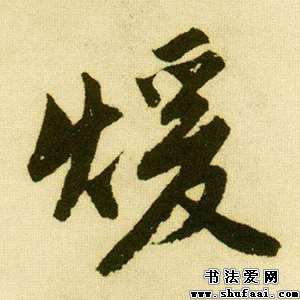 煖
书法爱网
www.shufaai.com